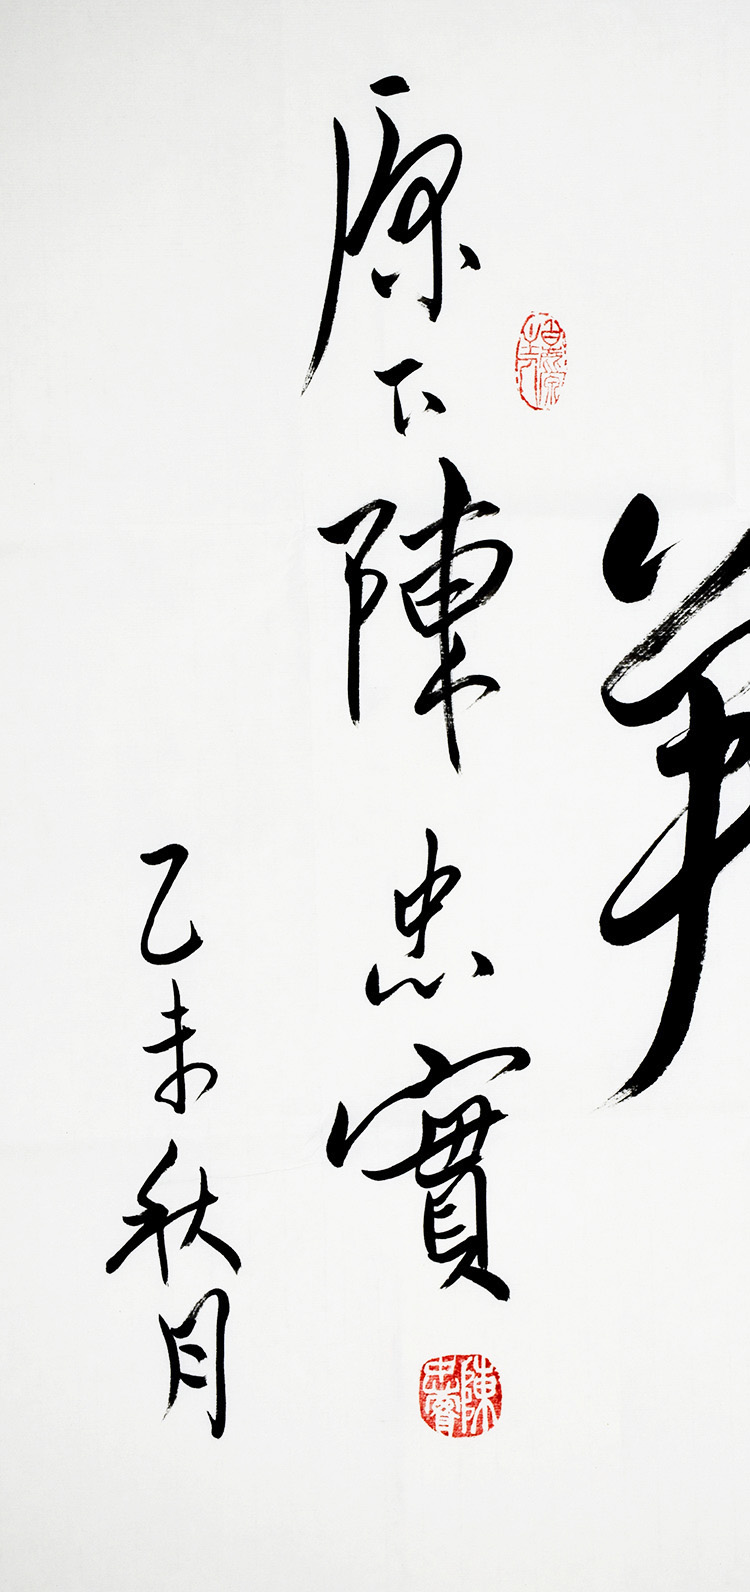 原下陳忠實
乙未秋月
陳忠實